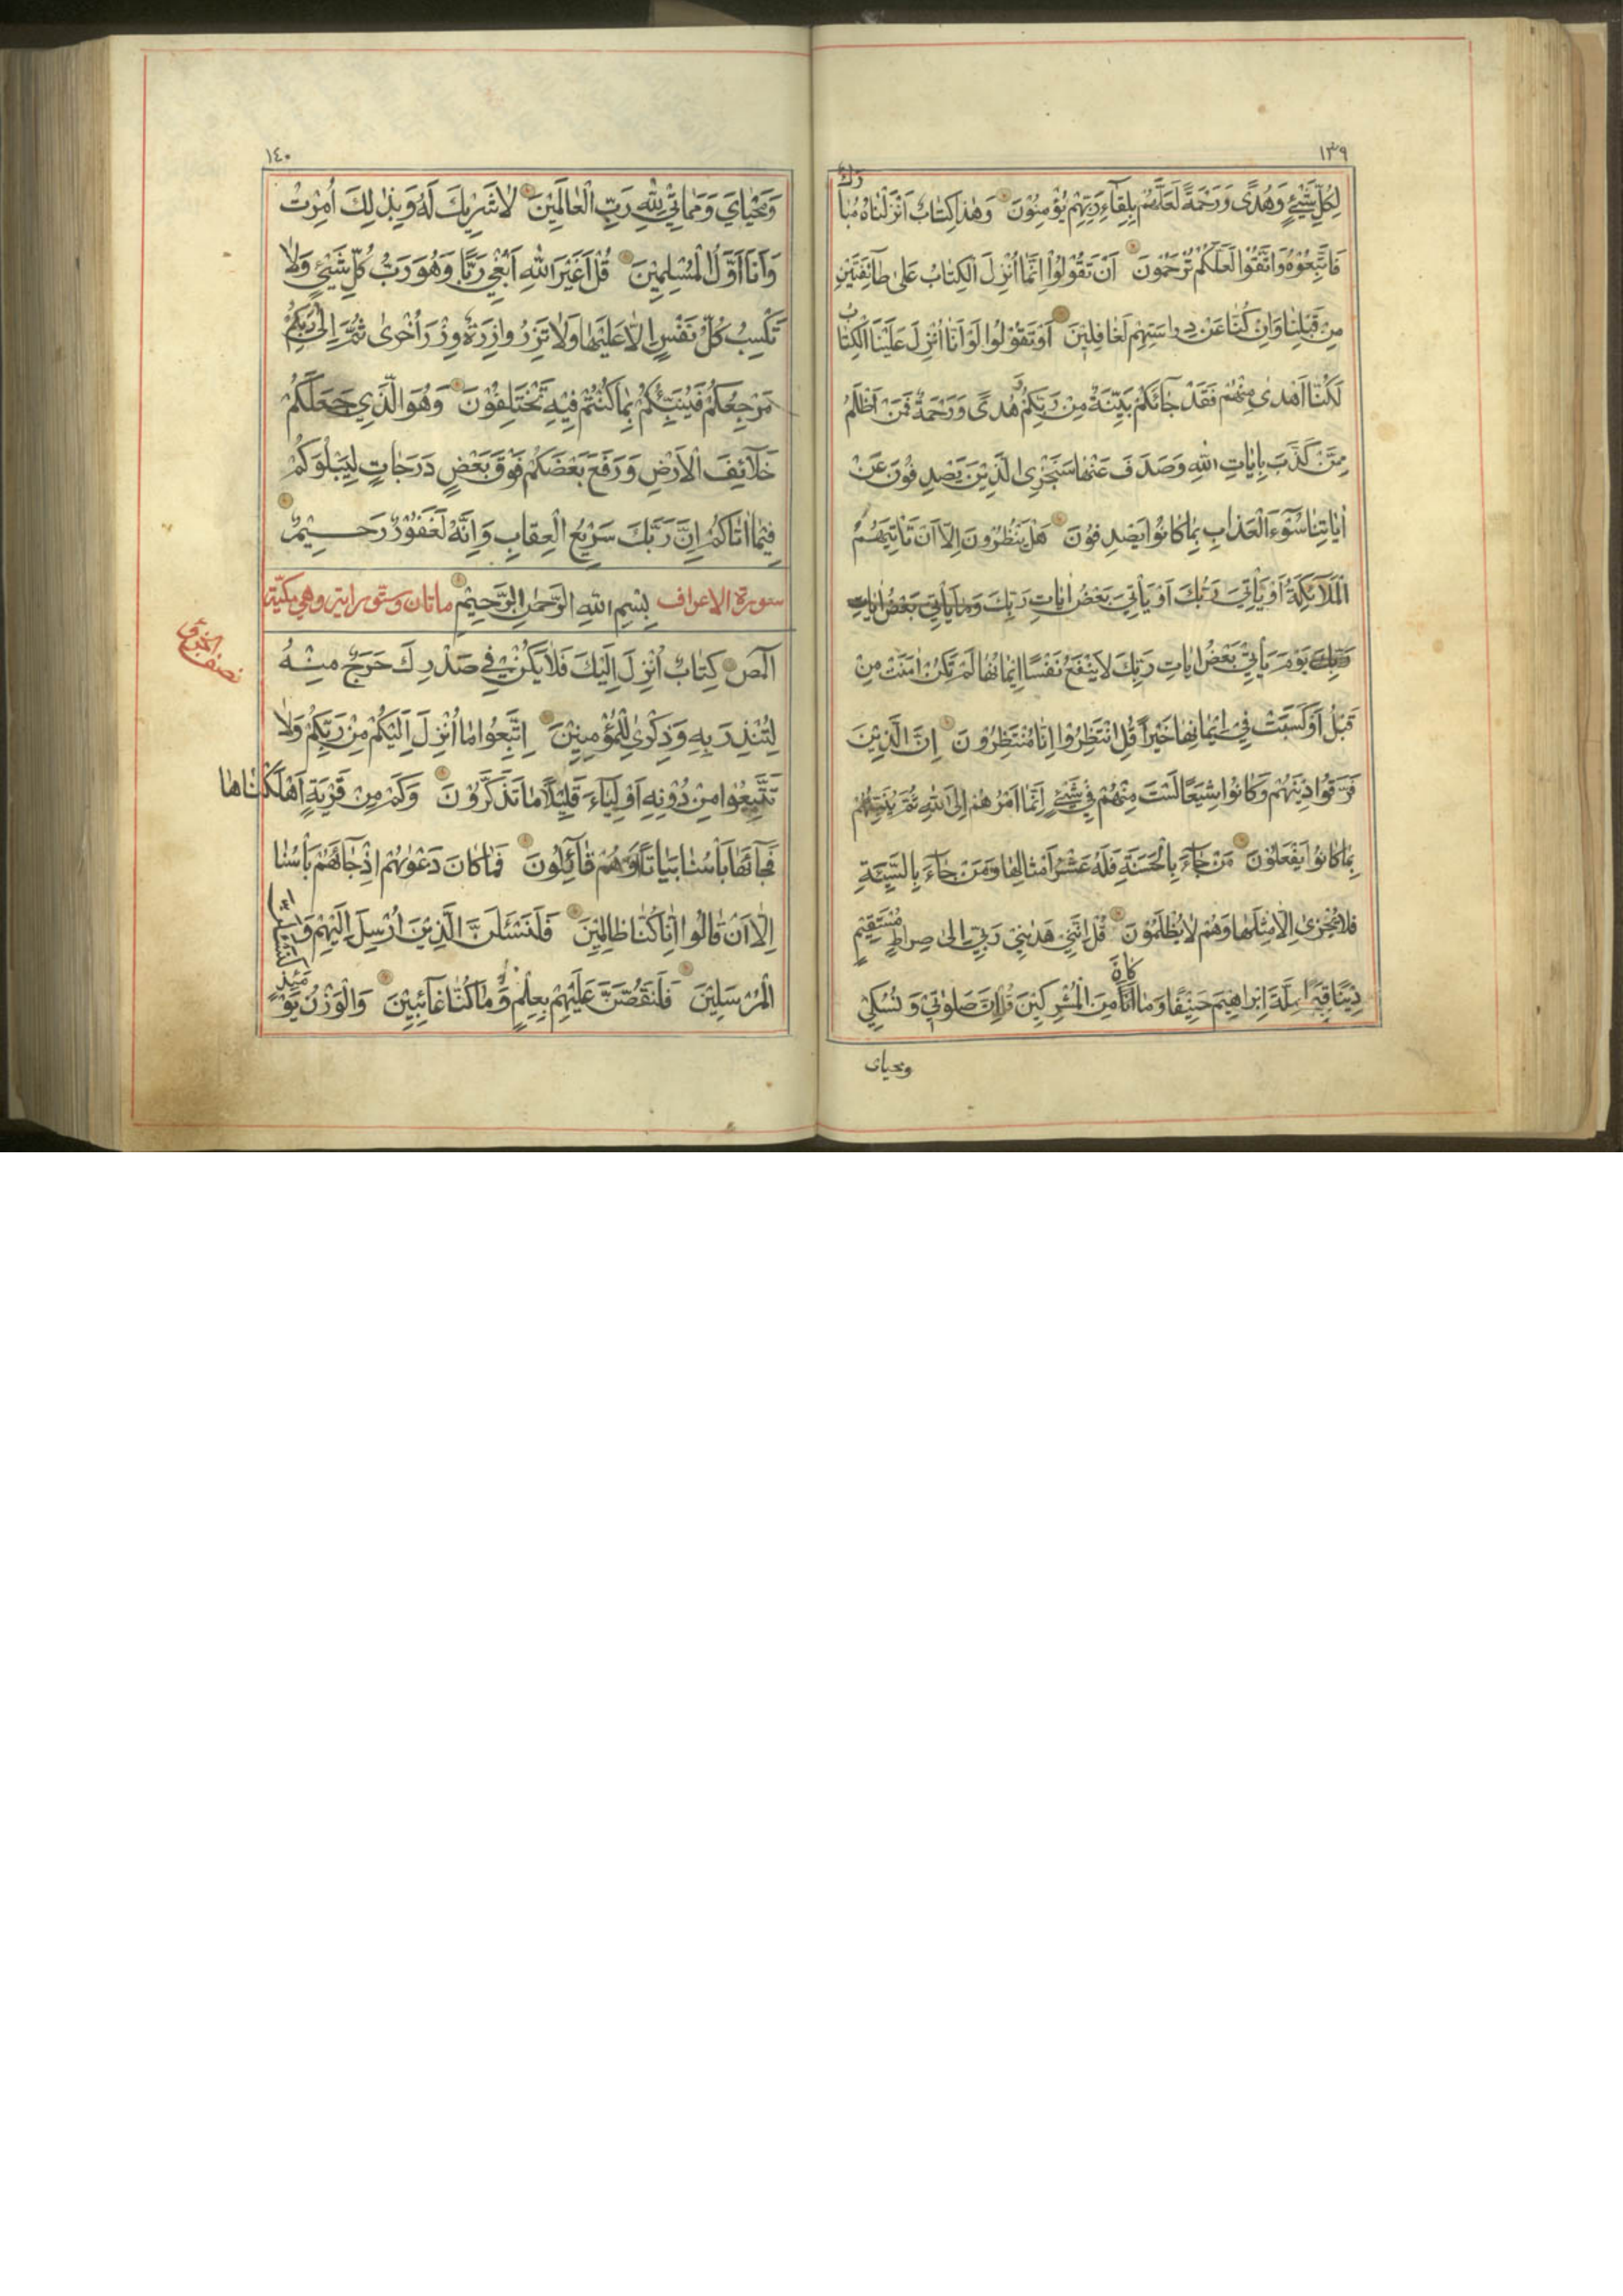 ١٣٩
لِكُلِّ شَيْئٍ وَهُدًى وَرَحْمَةً لَعَلَّهُمْ بِلِقَآءِ رَبِّهِمْ يُؤْمِنُوْنَ وَهٰذَا كِتَابٌ اَنْزَلْنَاهُ مُبَا
رَكٌ
فَاتَّبِعُوْهُ وَاتَّقُوْا لَعَلَّكُمْ تُرْحَمُوْنَ اَنْ تَقُوْلُوْا اِنَّمَا اُنْزِلَ الْكِتَابُ عَلٰى طَآئِفَتَيْنِ
مِنْ قَبْلِنَا وَاِنْ كُنَّا عَنْ دِرَاسَتِهِمْ لَغَافِلِيْنَ اَوْ تَقُوْلُوْا لَوْ اَنَّا اُنْزِلَ عَلَيْنَا الْكِتَابُ
لَكُنَّا اَهْدٰى مِنْهُمْ فَقَدْ جَآئَكُمْ بَيِّنَةٌ مِنْ رَبِّكُمْ وَهُدًى وَرَحْمَةٌ فَمَنْ اَظْلَمُ
مِمَّنْ كَذَّبَ بِاٰيَاتِ اللهِ وَصَدَفَ عَنْهَا سَنَجْزِى الَّذِيْنَ يَصْدِفُوْنَ عَنْ
اٰيَاتِنَا سُوْٓءَ الْعَذَابِ بِمَا كَانُوْا يَصْدِفُوْنَ هَلْ يَنْظُرُوْنَ اِلَّا اَنْ تَاْتِيَهُمُ
الْمَلَآئِكَةُ اَوْ يَاْتِىَ رَبُّكَ اَوْ يَاْتِىَ بَعْضُ اٰيَاتِ رَبِّكَ يَوْمَ يَاْتِى بَعْضُ اٰيَاتِ
رَبِّكَ يَوْمَ يَاْتِىْ بَعْضُ اٰيَاتِ رَبِّكَ لَا يَنْفَعُ نَفْسًا اِيْمَانُهَا لَمْ تَكُنْ اٰمَنَتْ مِنْ
قَبْلُ اَوْ كَسَبَتْ فِىْ اِيْمَانِهَا خَيْرًا قُلِ انْتَظِرُوْا اِنَّا مُنْتَظِرُوْنَ اِنَّ الَّذِيْنَ
فَرَّقُوْا دِيْنَهُمْ وَكَانُوْا شِيَعًا لَسْتَ مِنْهُمْ فِىْ شَيْئٍ اِنَّمَا اَمْرُهُمْ اِلَى اللهِ ثُمَّ يُنَبِّئُهُمْ
بِمَا كَانُوْا يَفْعَلُوْنَ مَنْ جَآءَ بِالْحَسَنَةِ فَلَهُ عَشْرُ اَمْثَالِهَا وَمَنْ جَآءَ بِالسَّيِّئَةِ
فَلَا يُجْزٰى اِلَّا مِثْلَهَا وَهُمْ لَا يُظْلَمُوْنَ قُلْ اِنَّنِىْ هَدٰىنِىْ رَبِّىْ اِلٰى صِرَاطٍ مُسْتَقِيْمٍ
دِيْنًا قِيَمًا مِلَّةَ اِبْرَاهِيْمَ حَنِيْفًا وَمَا كَانَ مِنَ الْمُشْرِكِيْنَ قُلْ اِنَّ صَلٰوتِىْ وَنُسُكِىْ
ومحياى
١٤٠
وَمَحْيَايَ وَمَمَاتِىْ لِلّٰهِ رَبِّ الْعَالَمِيْنَ لَا شَرِيْكَ لَهُ وَبِذٰلِكَ اُمِرْتُ
وَاَنَا اَوَّلُ الْمُسْلِمِيْنَ قُلْ اَغَيْرَ اللهِ اَبْغِىْ رَبًّا وَهُوَ رَبُّ كُلِّ شَيْئٍ وَلَا
تَكْسِبُ كُلُّ نَفْسٍ اِلَّا عَلَيْهَا وَلَا تَزِرُ وَازِرَةٌ وِزْرَ اُخْرٰى ثُمَّ اِلٰى رَبِّكُمْ
مَرْجِعُكُمْ فَيُنَبِّئُكُمْ بِمَا كُنْتُمْ فِيْهِ تَخْتَلِفُوْنَ وَهُوَ الَّذِىْ جَعَلَكُمْ
خَلَآئِفَ الْاَرْضِ وَرَفَعَ بَعْضَكُمْ فَوْقَ بَعْضٍ دَرَجَاتٍ لِيَبْلُوَكُمْ
فِيْمَا اٰتَاكُمْ اِنَّ رَبَّكَ سَرِيْعُ الْعِقَابِ وَاِنَّهُ لَغَفُوْرٌ رَحِيْمٌ
سورة الاعراف بِسْمِ اللهِ الرَّحْمٰنِ الرَّحِيْمِ ماتان وستو براية وهى مكيّة
نصف الحزب
الٓمٓصٓ كِتَابٌ اُنْزِلَ اِلَيْكَ فَلَا يَكُنْ فِىْ صَدْرِكَ حَرَجٌ مِنْهُ
لِتُنْذِرَ بِهِ وَذِكْرٰى لِلْمُؤْمِنِيْنَ اِتَّبِعُوْا مَا اُنْزِلَ اِلَيْكُمْ مِنْ رَبِّكُمْ وَلَا
تَتَّبِعُوْا مِنْ دُوْنِهِ اَوْلِيَآءَ قَلِيْلًا مَا تَذَكَّرُوْنَ وَكَمْ مِنْ قَرْيَةٍ اَهْلَكْنَاهَا
فَجَآئَهَا بَاْسُنَا بَيَاتًا اَوْ هُمْ قَآئِلُوْنَ فَمَا كَانَ دَعْوٰىهُمْ اِذْ جَآئَهُمْ بَاْسُنَا
اِلَّا اَنْ قَالُوْا اِنَّا كُنَّا ظَالِمِيْنَ فَلَنَسْئَلَنَّ الَّذِيْنَ اُرْسِلَ اِلَيْهِمْ وَلَنَسْئَلَنَّ
الْمُرْسَلِيْنَ فَلَنَقُصَّنَّ عَلَيْهِمْ بِعِلْمٍ وَمَا كُنَّا غَآئِبِيْنَ وَالْوَزْنُ يَوْمَئِذٍ